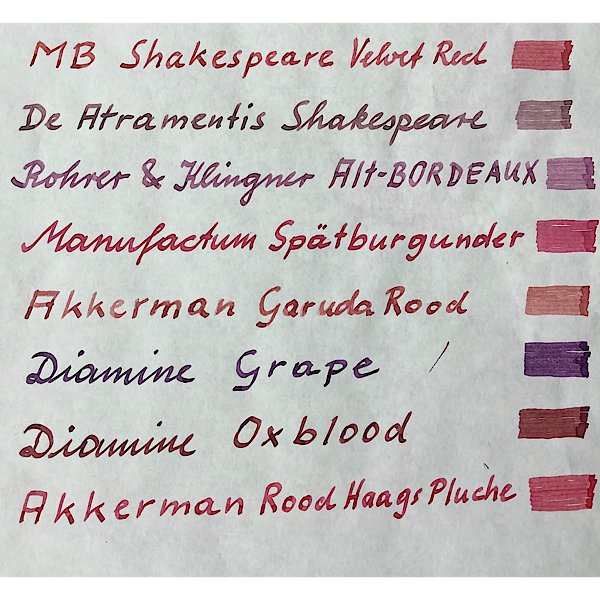 MB Shakespeare Velvet Red
De Atramentis Shakespeare
Rohrer & Klingner Alt-BORDEAUX
Manufactum Spätburgunder
Akkerman Garuda Rood
Diamine Grape
Diamine Oxblood
Akkerman Rood Haags Pluche